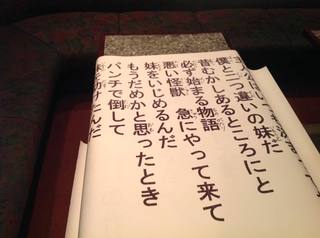 僕と二つ違いの妹だ
昔むかしあるところにと
必ず始まる物語
悪い怪獣 急にやって来て
妹をいじめるんだ
もうだめかと思ったとき
パンチで倒して